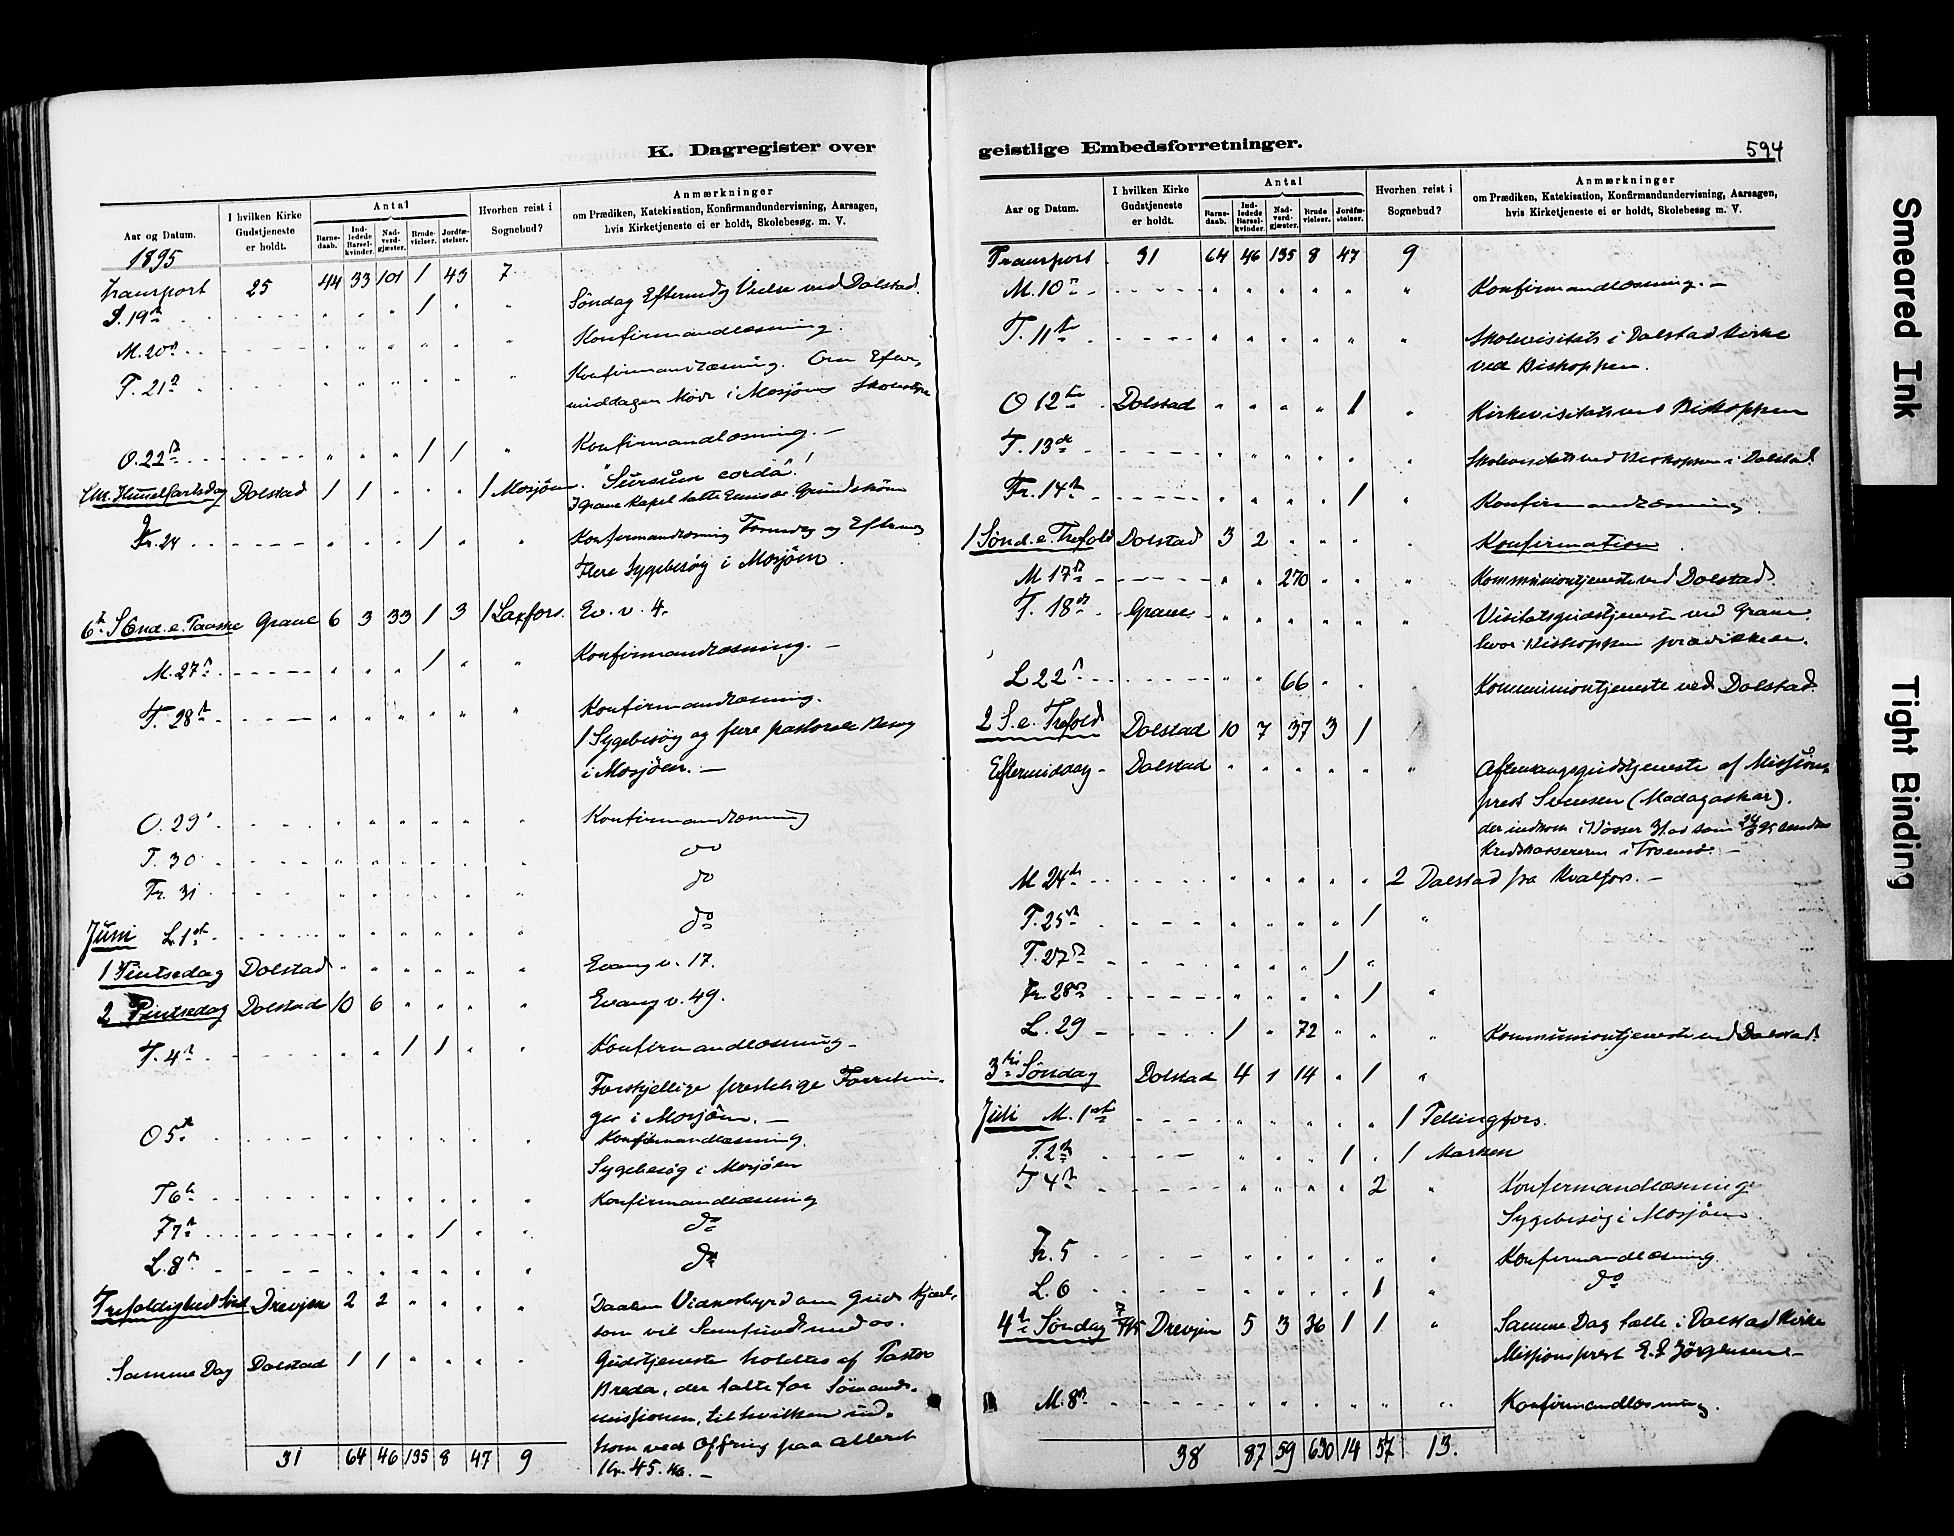 K. Dagregister over
Aar og Datum.
I hvilken Kirke Gudstjeneste er holdt.
Antal
Barnedaab. Indledede Barselkvinder. Nadverdgjæster. Brudevielser. Jordfæstelser.
Hvorhen reist i Sognebud?
Anmærkninger
om Prædiken, Katekisation, Konfirmandundervisning, Aarsagen,
hvis Kirketjeneste ei er holdt, Skolebesøg. m. V.
1895
Transport 25 44 33 101 1 43 7
S. 19de 1 Søndag Eftermdg Vielse ved Dolstad.
M. 20de Konfirmandlæsning.
T. 21de Konfirmandlæsning. Om Efter,
middagen Møde i Mosjøens
O. 22de 1 1 Konfirmandlæsning. –
Chr. Himmelfartsdag Dolstad 1 1 1 Mosjøen. "Sursum corda"!
I Grane Kapel talte
Fr. 24 1 Konfirmandlæsning Formdg og Eftermdg
Flere Sygebesøg i Mosjøen.
6te Sønd. e. Paaske Grane 6 3 33 1 3 1 Laxfors. Ev. v. 4.
M. 27de 1 Konfirmandlæsning. –
T. 28de Konfirmandlæsning.
1 Sygebesøg og flere pastorale Besøg
i Mosjøen. –
O. 29 Konfirmandlæsning
T. 30 do
Fr. 31 do
Juni L. 1ste do
1 Pintsedag Dolstad Evang. v. 17.
2 Pintsedag Dolstad 10 6 Evang. v. 49.
T. 4de 1 1 Konfirmandlæsning –
Forskjellige prestelige Forretnin-
ger i Mosjøen. –
O 5te Konfirmandlæsning.
Sygebesøg i Mosjøen
T 6te Konfirmandlæsning
F 7de 1 do
L. 8de do
Trefoldighed Sønd Drevjen 2 2 Daaben Vidnesbyrd om Guds Kjærl.
som vil Samfund med os.
Samme Dag Dolstad 1 1 Gudstjeneste holdtes af Pastor
Breda, der talte for Sømands-
missionen, til hvilken ind-
kom ved Offring paa Alteret
Kr. 45. –
31 64 46 135 8 47 9
geistlige Embedsforretninger.
594
Aar og Datum.
I hvilken Kirke Gudstjeneste er holdt.
Antal
Barnedaab. Indledede Barselkvinder. Nadverdgjæster. Brudevielser. Jordfæstelser.
Hvorhen reist i Sognebud?
Anmærkninger
om Prædiken, Katekisation, Konfirmandundervisning, Aarsagen,
hvis Kirketjeneste ei er holdt, Skolebesøg m. V.
Transport 31 64 46 135 8 47 9
M. 10de Konfirmandlæsning. –
T. 11te Skolevisitats i Dolstad Kirke
ved Biskoppen.
O 12te Dolstad 1 Kirkevisitats ved Biskoppen
T. 13de Skolevisitats ved Biskoppen i Dolstad.
Fr. 14de 1 Konfirmandlæsning
1 Sønd. e. Trefold Dolstad 3 2 Konfirmation
M 17de 270 Kommuniontjeneste ved Dolstad.
T. 18de Grane Visitatsgudstjeneste ved Grane,
hvor Biskoppen prædikede.
L 22de 66 Kommuniontjeneste ved Dolstad.
2 S. e. Trefold Dolstad 10 7 37 3 1
Eftermiddag – Dolstad Aftensangsgudstjeneste af Missions-
prest Svensen (Madagaskar).
der indkom i Bøsser som sendtes
Kredskassereren i Tromsø. –
M 24de 2 Dolstad fra Kvalfors. –
T. 25de 1
T. 27de 1
Fr. 28de 1
L. 29 – 1 72 Kommuniontjeneste ved Dolstad.
3die Søndag Dolstad 4 1 14 1
Juli M. 1ste 1
T. 2den 1 1 Marken
T 4de 2 Konfirmandlæsning
Sygebesøg i Mosjøen
Fr. 5 Konfirmandlæsning
L. 6 1 do
4de Søndag 7/7 95 Drevjen 5 3 36 1 1 Samme Dag talte i Dolstad Kirke
Missionsprest E. Jørgensen –
M. 8de Konfirmandlæsning.
38 87 59 630 14 57 13.
Smeared Ink
Tight Binding